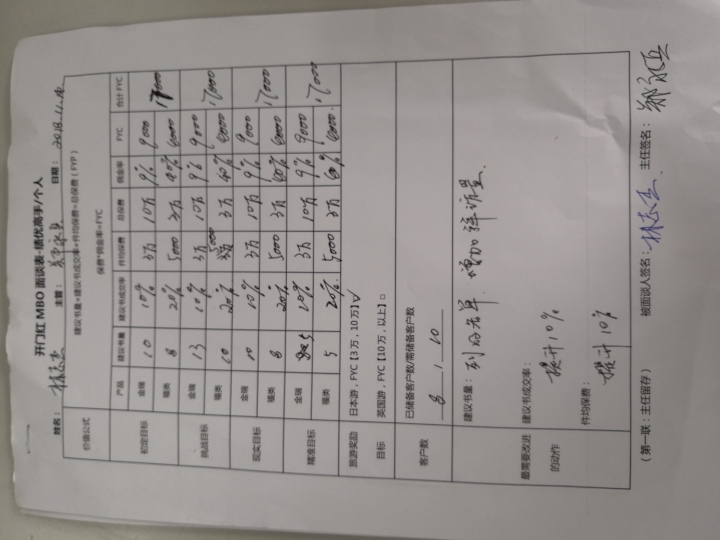 开门红 MBO 面谈表-绩优高手/个人
姓名： 林志杰 主管： 日期： 2018.11.
价值公式 建议书量*建议书成交率*件均保费=总保费（FYP）
保费*佣金率=FYC
产品 建议书量 建议书成交率 件均保费 总保费 佣金率 FYC 合计 FYC
初定目标 金瑞 10 10% 3万 10万 9% 9000 17000
福类 8 20% 5000 3万 40%
挑战目标 金瑞 13 10% 3万 10万 9% 9000 17000
福类 10 20% 5000 3万 60%
现实目标 金瑞 10 10% 3万 10万 9% 9000 17000
福类 8 20% 5000 3万
精准目标 金瑞 5 10% 3万 10万 9% 9000 17000
福类 5 20% 5000 3万 60%
旅游奖励 日本游，FYC【3万，10万】☑
目标 英国游，FYC【10万，以上】□
客户数 已储备客户数/需储备客户数
8 / 10
最需要改进 建议书量： 列好名单，增加拜访量.
的动作 建议书成交率： 提升10%
件均保费： 提升10%
（第一联：主任留存） 被面谈人签名： 林志杰 主任签名：